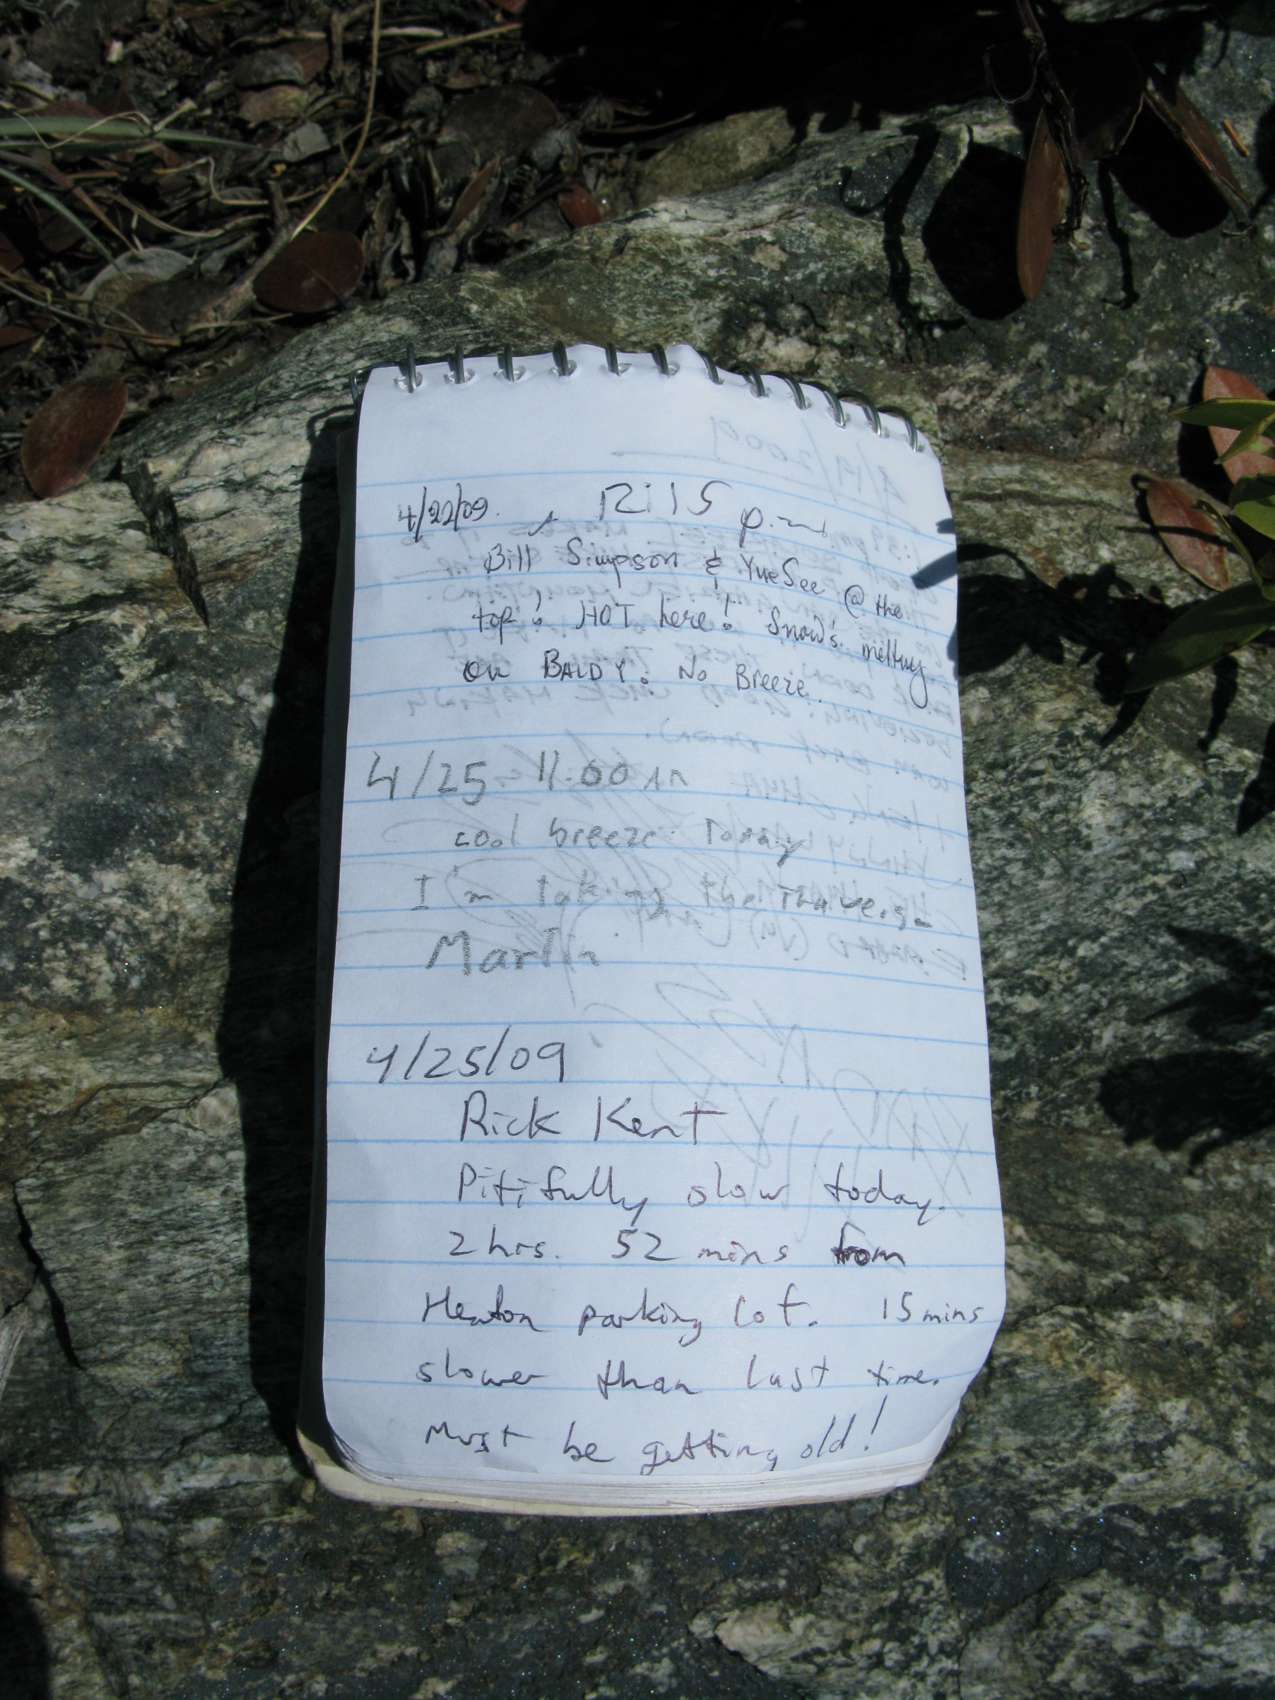 4/22/09. 12:15 p.m
Bill Simpson & YueSee @ the
top! HOT here! Snow's melting
on BALDY. No Breeze.
4/25 11:00 AM
cool breeze Today
I'm taking the
Marlin
4/25/09
Rick Kent
Pitifully slow today.
2 hrs. 52 mins from
Heaton parking lot. 15 mins
slower than last time.
Must be getting old!